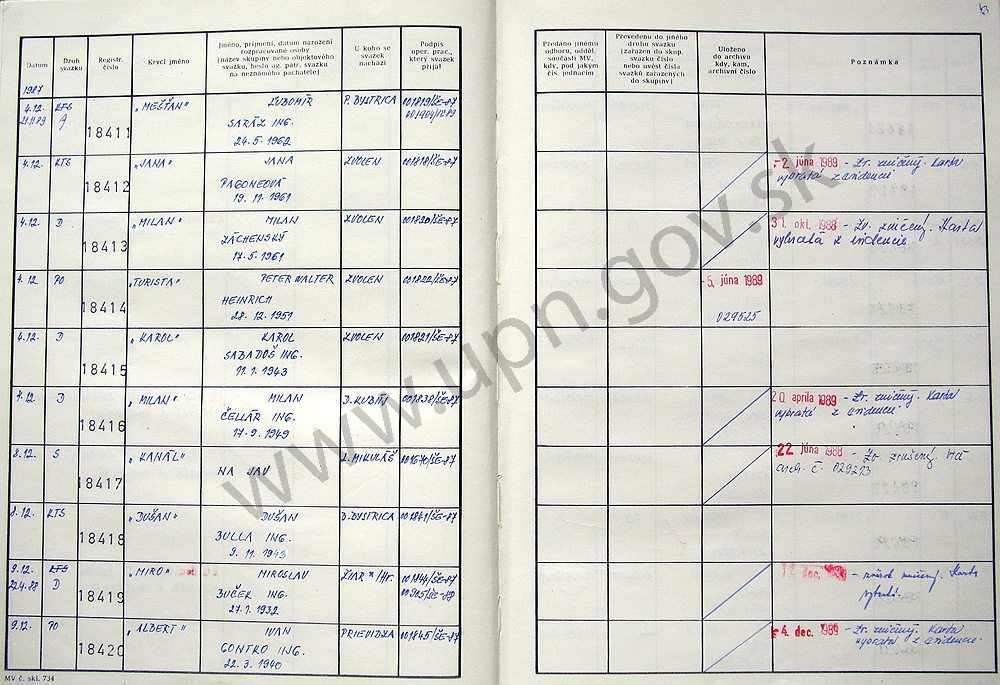 Datum
Druh svazku
Registr. číslo
Krycí jméno
Jméno, příjmení, datum narození rozpracované osoby
[název skupiny nebo objektového svazku, heslo ag. pátr. svazku na neznámého pachatele]
U koho se svazek nachází
Podpis oper. prac., který svazek přijal
Předáno jinému odboru, odděl. součásti MV, kdy, pod jakým čís. jednacím
Převedeno do jiného druhu svazku [zařazen do skup. svazku číslo nebo uvést čísla svazků zařazených do skupiny]
Uloženo do archivu kdy, kam, archivní číslo
Poznámka
1987
4.12. KTS 18411 "MEŠŤAN" ĽUBOMÍR P. BYSTRICA 001819/ŠE-87
21.11.89 A SARÁZ ING.
24.5.1962
4.12. KTS 18412 "JANA" JANA ZVOLEN 001818/ŠE-87 -2. júna 1989 - Zv. zničený. Karta
PAGONEOVÁ vybratá z evidencie
19.11.1961
4.12. D 18413 "MILAN" MILAN ZVOLEN 001820/ŠE-87 31. okt. 1988 - Zv. zničený. Karta
ZÁCHENSKÝ vybratá z evidencie
17.5.1961
4.12 PO 18414 "TURISTA" PETER WALTER ZVOLEN 001822/ŠE-87 -5. júna 1989
HEINRICH 029525
28.12.1951
4.12. D 18415 "KAROL" KAROL ZVOLEN 001821/ŠE-87
SABADOŠ ING.
11.1.1943
4.12. D 18416 "MILAN" MILAN D. KUBÍN 001838/ŠE-87 20. apríla 1989 - Zv. zničený. Karta
ČELLÁR ING. vybratá z evidencie.
17.9.1949
8.12. S 18417 "KANÁL" L. MIKULÁŠ 001670/ŠE-87 22. júna 1988 - Zv zrušený.
NA JAV arch. č. 029213
8.12. KTS 18418 "DUŠAN" DUŠAN B. BYSTRICA 001841/ŠE-87
BULLA ING.
9.11.1943
9.12. KTS 18419 "MIRO" MIROSLAV ŽIAR n/Hr. 001844/ŠE-87 12. dec. - zväzok zničený. Karta
22.4.88 D BUČEK ING. 00905/ŠE-88 vybratá.
27.1.1932
9.12. PO 18420 "ALBERT" IVAN PRIEVIDZA 001845/ŠE-87 -4. dec. 1989 - Zv. zničený. Karta
GONTKO ING. vybratá z evidencie.
22.3.1940
MV č. skl. 734
www.upn.gov.sk